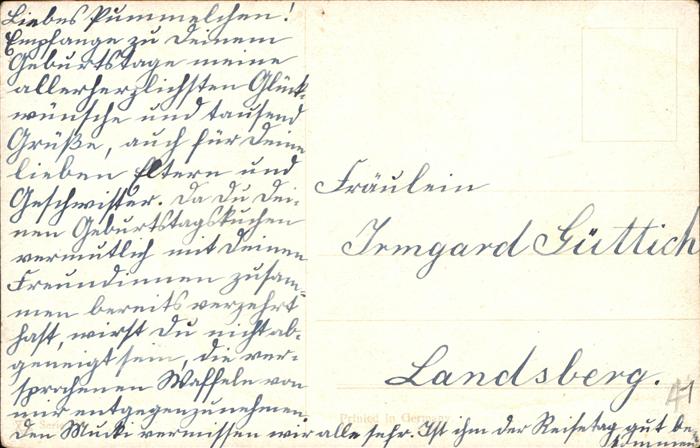 Liebes Pummelchen!
Empfange zu Deinem
Geburtstage meine
allerherzlichsten Glück-
wünsche und tausend
Grüße, auch für Deine
lieben Eltern und
Geschwister. Da Du Dei-
nen Geburtstagskuchen
vermutlich mit Deinen
Freundinnen zusam-
men bereits verzehrt
hast, wirst Du nicht ab-
geneigt sein, die ver-
sprochenen Waffeln von
mir entgegenzunehmen.
Den Mucki vermissen wir alle sehr. Ist ihm der Reisetag gut be-
kommen
Fräulein
Irmgard Güttich
Landsberg.
Serie
Printed in Germany